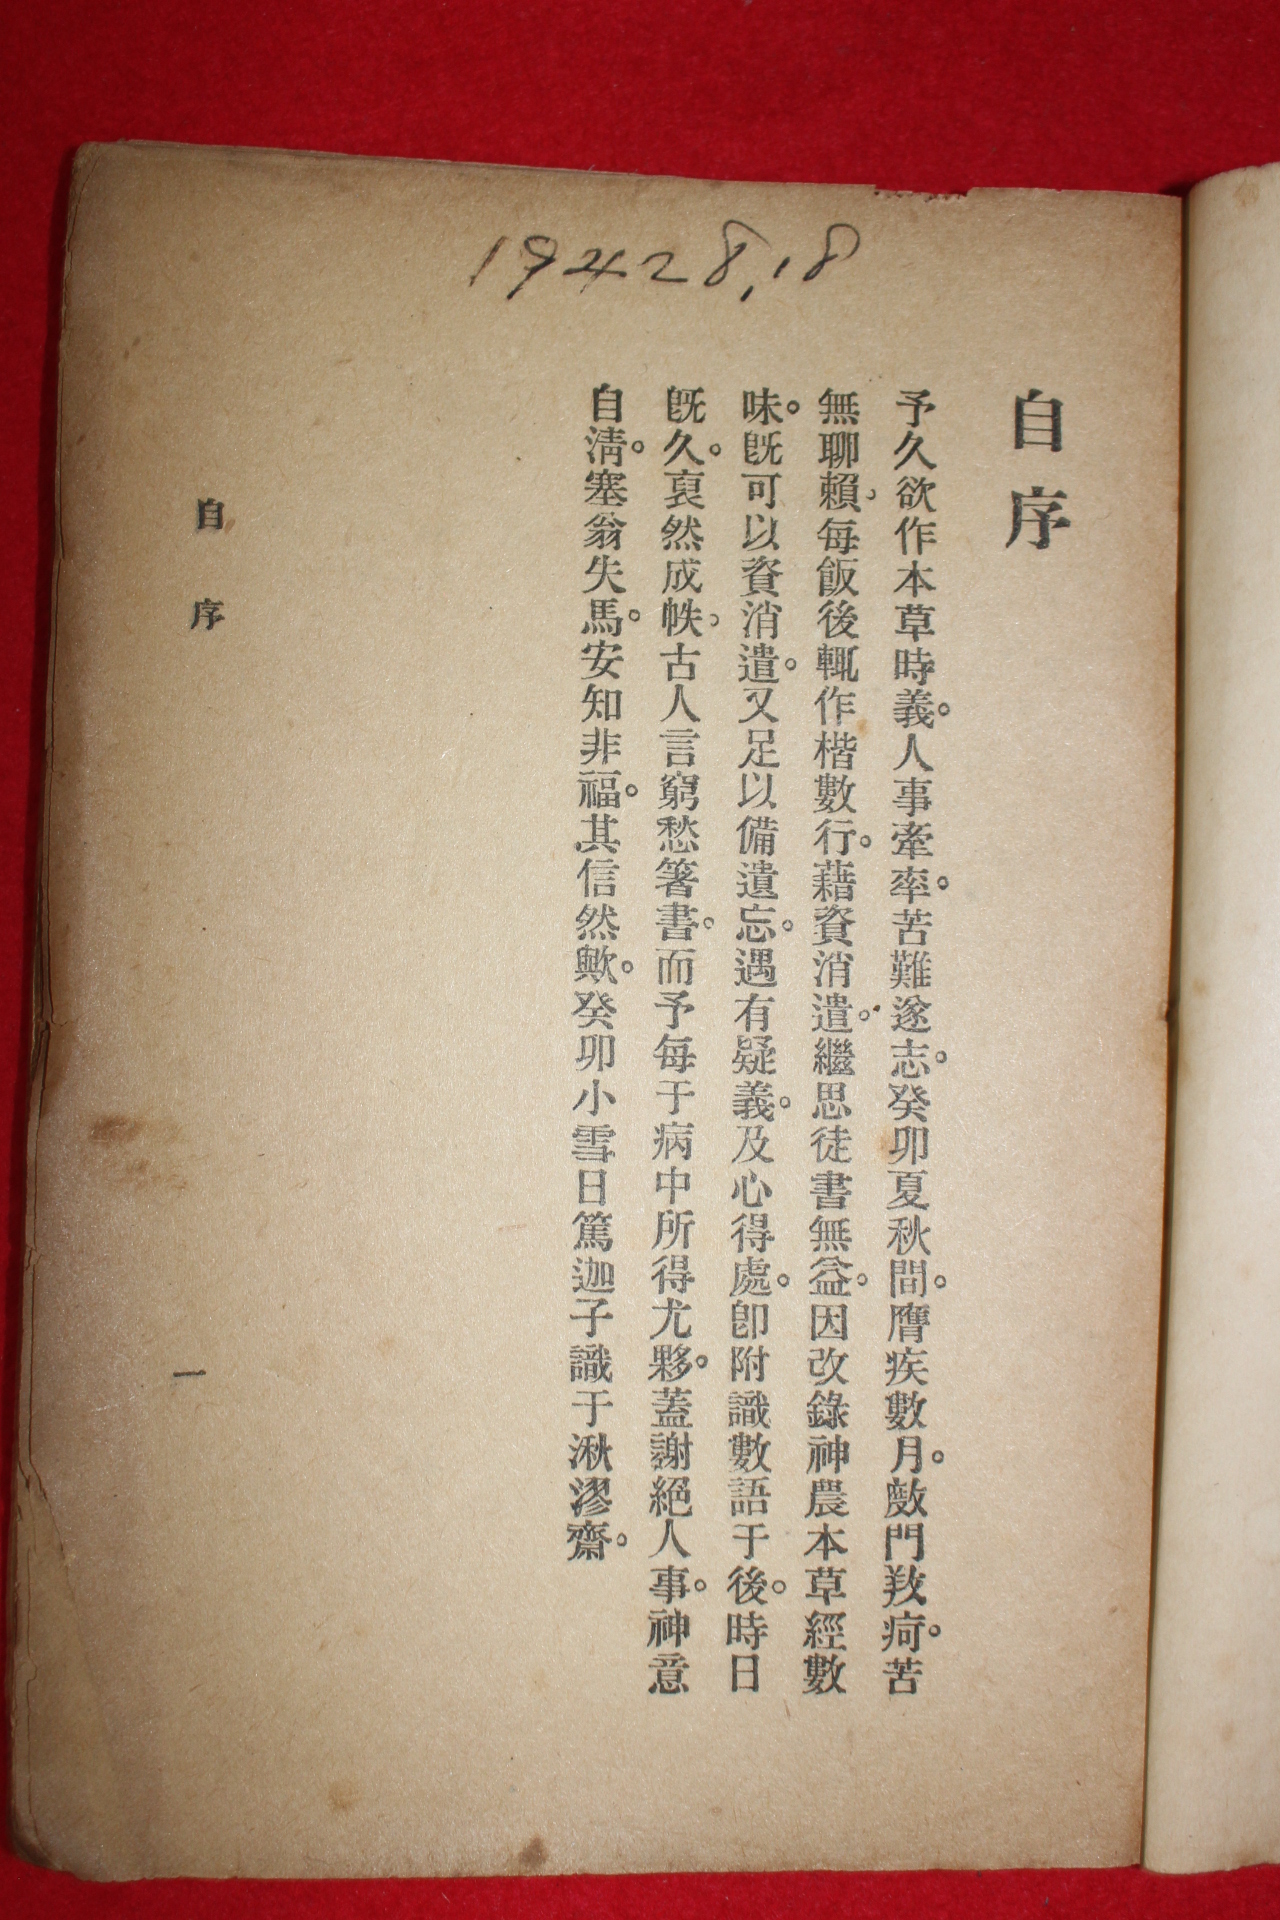 1942 8,18
自序
予久欲作本草時義。人事牽率。苦難遂志。癸卯夏秋間。膺疾數月。斂門羖疴。苦
無聊賴。每飯後輒作楷數行。藉資消遣。繼思徒書無益。因改錄神農本草經數
味。旣可以資消遣。又足以備遺忘。遇有疑義。及心得處。卽附識數語于後。時日
旣久。裒然成帙。古人言窮愁箸書。而予每于病中所得尤夥。蓋謝絕人事。神意
自淸。塞翁失馬。安知非福。其信然歟。癸卯小雪日篤迦子識于湫漻齋。
自序
一